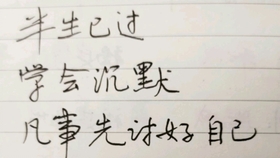 半生已过
学会沉默
凡事先讨好自己